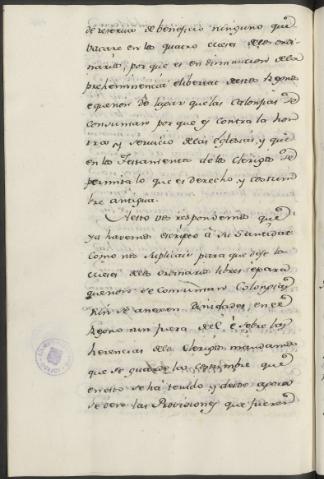 de reservar de beneficio ninguno que
vacare en los quatro cuesses de los ordi-
narios, por que es en diminucion de la
prehominencia e libertad destos Reynos
e que non de lugar que las Calongias se
consuman por que es contra la hon-
rra y servicio de las Eglesias, y que
en los Testamentos de los Clerigos se
permita lo que es derecho y costum-
bre antigua.
A esto vos respondemos que
ya havemos escripto a Su Santidad
como nos suplicais para que dexe los
cuesses de los ordinarios libres e para
que non se consuman Calongias
nin se anexen Dinidades en el
Reyno nin fuera del. E sobre las
herencias de los Clerigos mandamos
que se guarde la costumbre que
en esto se ha tenido y desto agora
se dere las Provisiones que fueren